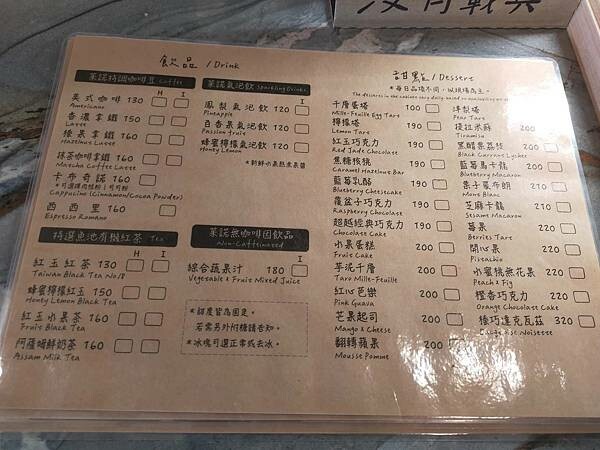 飲品 / Drink
茉諾特調咖啡豆 Coffee
H I
美式咖啡 130
Americano
香濃拿鐵 150
Latte
榛果拿鐵 160
Hazelnut Latte
抹茶咖啡拿鐵 160
Matcha Coffee Latte
卡布奇諾 160
*可選擇肉桂粉|可可粉
Cappuccino (Cinnamon/Cocoa Powders)
西西里 160
Espresso Romano
特選魚池有機紅茶 Tea
H I
紅玉紅茶 130
Taiwan Black Tea No.18
蜂蜜檸檬紅玉 150
Honey Lemon Black Tea
紅玉水果茶 160
Fruit Black Tea
阿薩姆鮮奶茶 160
Assam Milk Tea
茉諾氣泡飲 Sparkling Drinks
I
鳳梨氣泡飲 120
Pineapple
百香果氣泡飲 120
Passion fruit
蜂蜜檸檬氣泡飲 120
Honey Lemon
*新鮮水果熬煮果醬
茉諾無咖啡因飲品
Non-Caffeinated
I
綜合蔬果汁 180
Vegetable & Fruit Mixed Juice
*甜度皆為固定。
若需另外附糖請告知。
*冰塊可選正常或去冰。
甜點 / Dessert
*每日品項不同,以現場為主。
The desserts in the cabinet vary daily based on
千層蛋塔 100
Mille-Feuille Egg Tart
檸檬塔 190
Lemon Tare
紅玉巧克力 190
Red Jade Chocolate
焦糖核桃 190
Caramel Hazelnut Bar
藍莓乳酪 190
Blueberry Cheesecake
覆盆子巧克力 190
Raspberry Chocolate
超越經典巧克力 190
Chocolate Cake
水果蛋糕 200
Fruit Cake
芋泥千層 200
Taro Mille-Feuille
紅心芭樂 200
Pink Guava
芒果起司 200
Mango & Cheese
翻轉蘋果 200
Mousse Pomme
洋梨塔 200
Pear Tare
提拉米蘇 200
Tiramisu
黑醋栗荔枝 200
Black Currant Lychee
藍莓馬卡龍 200
Blueberry Macaron
栗子蒙布朗 210
Mont Blanc
芝麻卡龍 210
Sesame Macaron
莓果 220
Berries Tare
開心果 220
Pistachio
水蜜桃無花果 220
Peach & Fig
橙香巧克力 220
Orange Chocolate Cake
榛巧達克瓦茲 320
Noisette